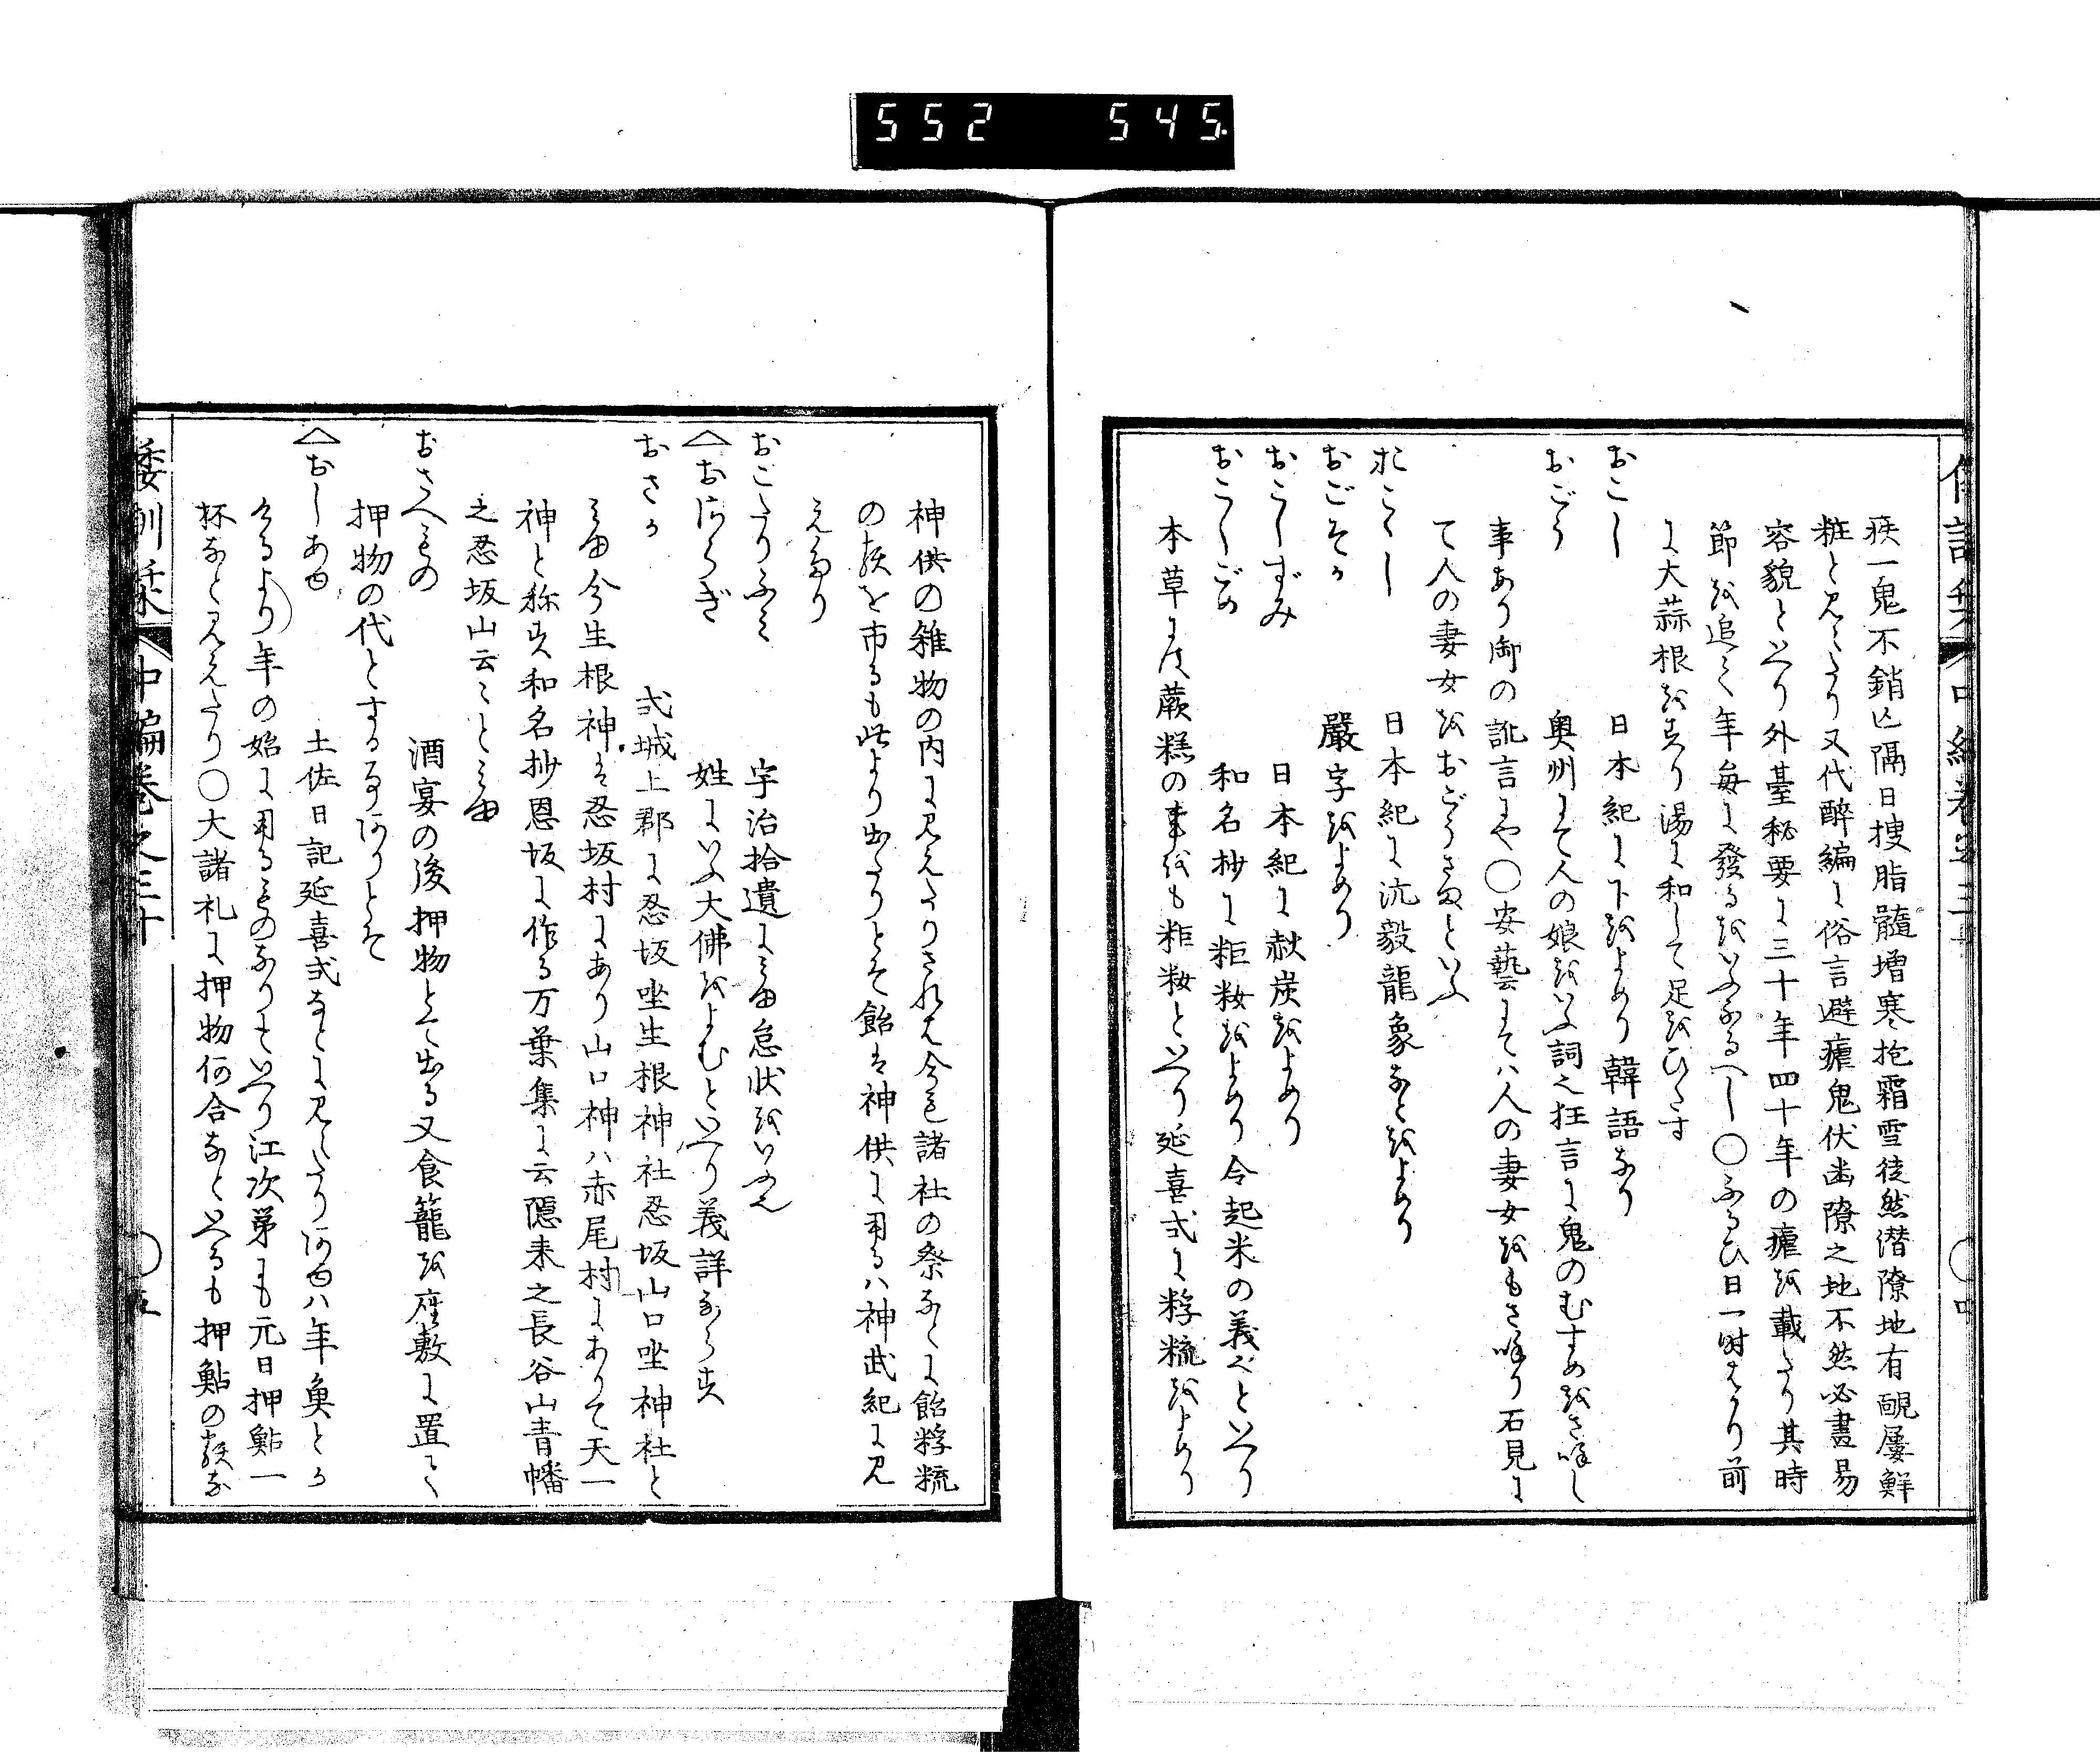 552 545
疾一鬼不銷亾隔日搜脂髓增寒抱霜雪徒然潛隙地有靦屢鮮
粧と見えたり又代醉編に俗言避瘧鬼伏幽隙之地不然必畫易
容貌といへり外臺秘要に三十年四十年の瘧を載たり其時
節を追て年毎に發るをいふなるへし〇ふるひ日一時はかり前
に大蒜根をすり湯に和して足をひたす
おこし 日本紀に下をよめり韓語なり
おごう 奥州にて人の娘をいふ詞也狂言に鬼のむすめをさ味し
事あり御の訛言にや〇安藝にてハ人の妻女をもさ味り石見に
て人の妻女をおごうさまといふ
おこゝし 日本紀に沆毅龍象なとをよめり
おごそか 嚴字をよめり
おこしずみ 日本紀に
おこしごめ 和名抄に粔籹をよめり今起米の義也といへり
本草に蕨糕の事をも粔籹といへり延喜式に粰𥹷をよめり
神供の雑物の内に見えたりされは今も諸社の祭なとに飴粰𥹷
の類を市るも此より出たりとそ飴は神供に用るハ神武紀に見
えたり
おこたりふみ 宇治拾遺にみゆ怠状をいふ也
△おさらぎ 姓にいふ大佛をよむといへり義詳ならす
おさか 式城上郡に忍坂坐生根神社忍坂山口坐神社と
みゆ今生根神は忍坂村にあり山口神ハ赤尾村にありて天一
神と称す和名抄恩坂に作る万葉集に云隱来之長谷山青幡
之忍坂山云々とみゆ
おさへもの 酒宴の後押物とて出る又食籠を座敷に置て
押物の代とする事ありとそ
△おしあゆ 土佐日記延喜式なとに見えたりあゆハ年魚とか
けるより年の始に用るものなりといへり江次第にも元日押鮎一
杯なと見えたり〇大諸礼に押物何合なといへるも押鮎の類な
倭訓栞 中編巻之三十 〇五